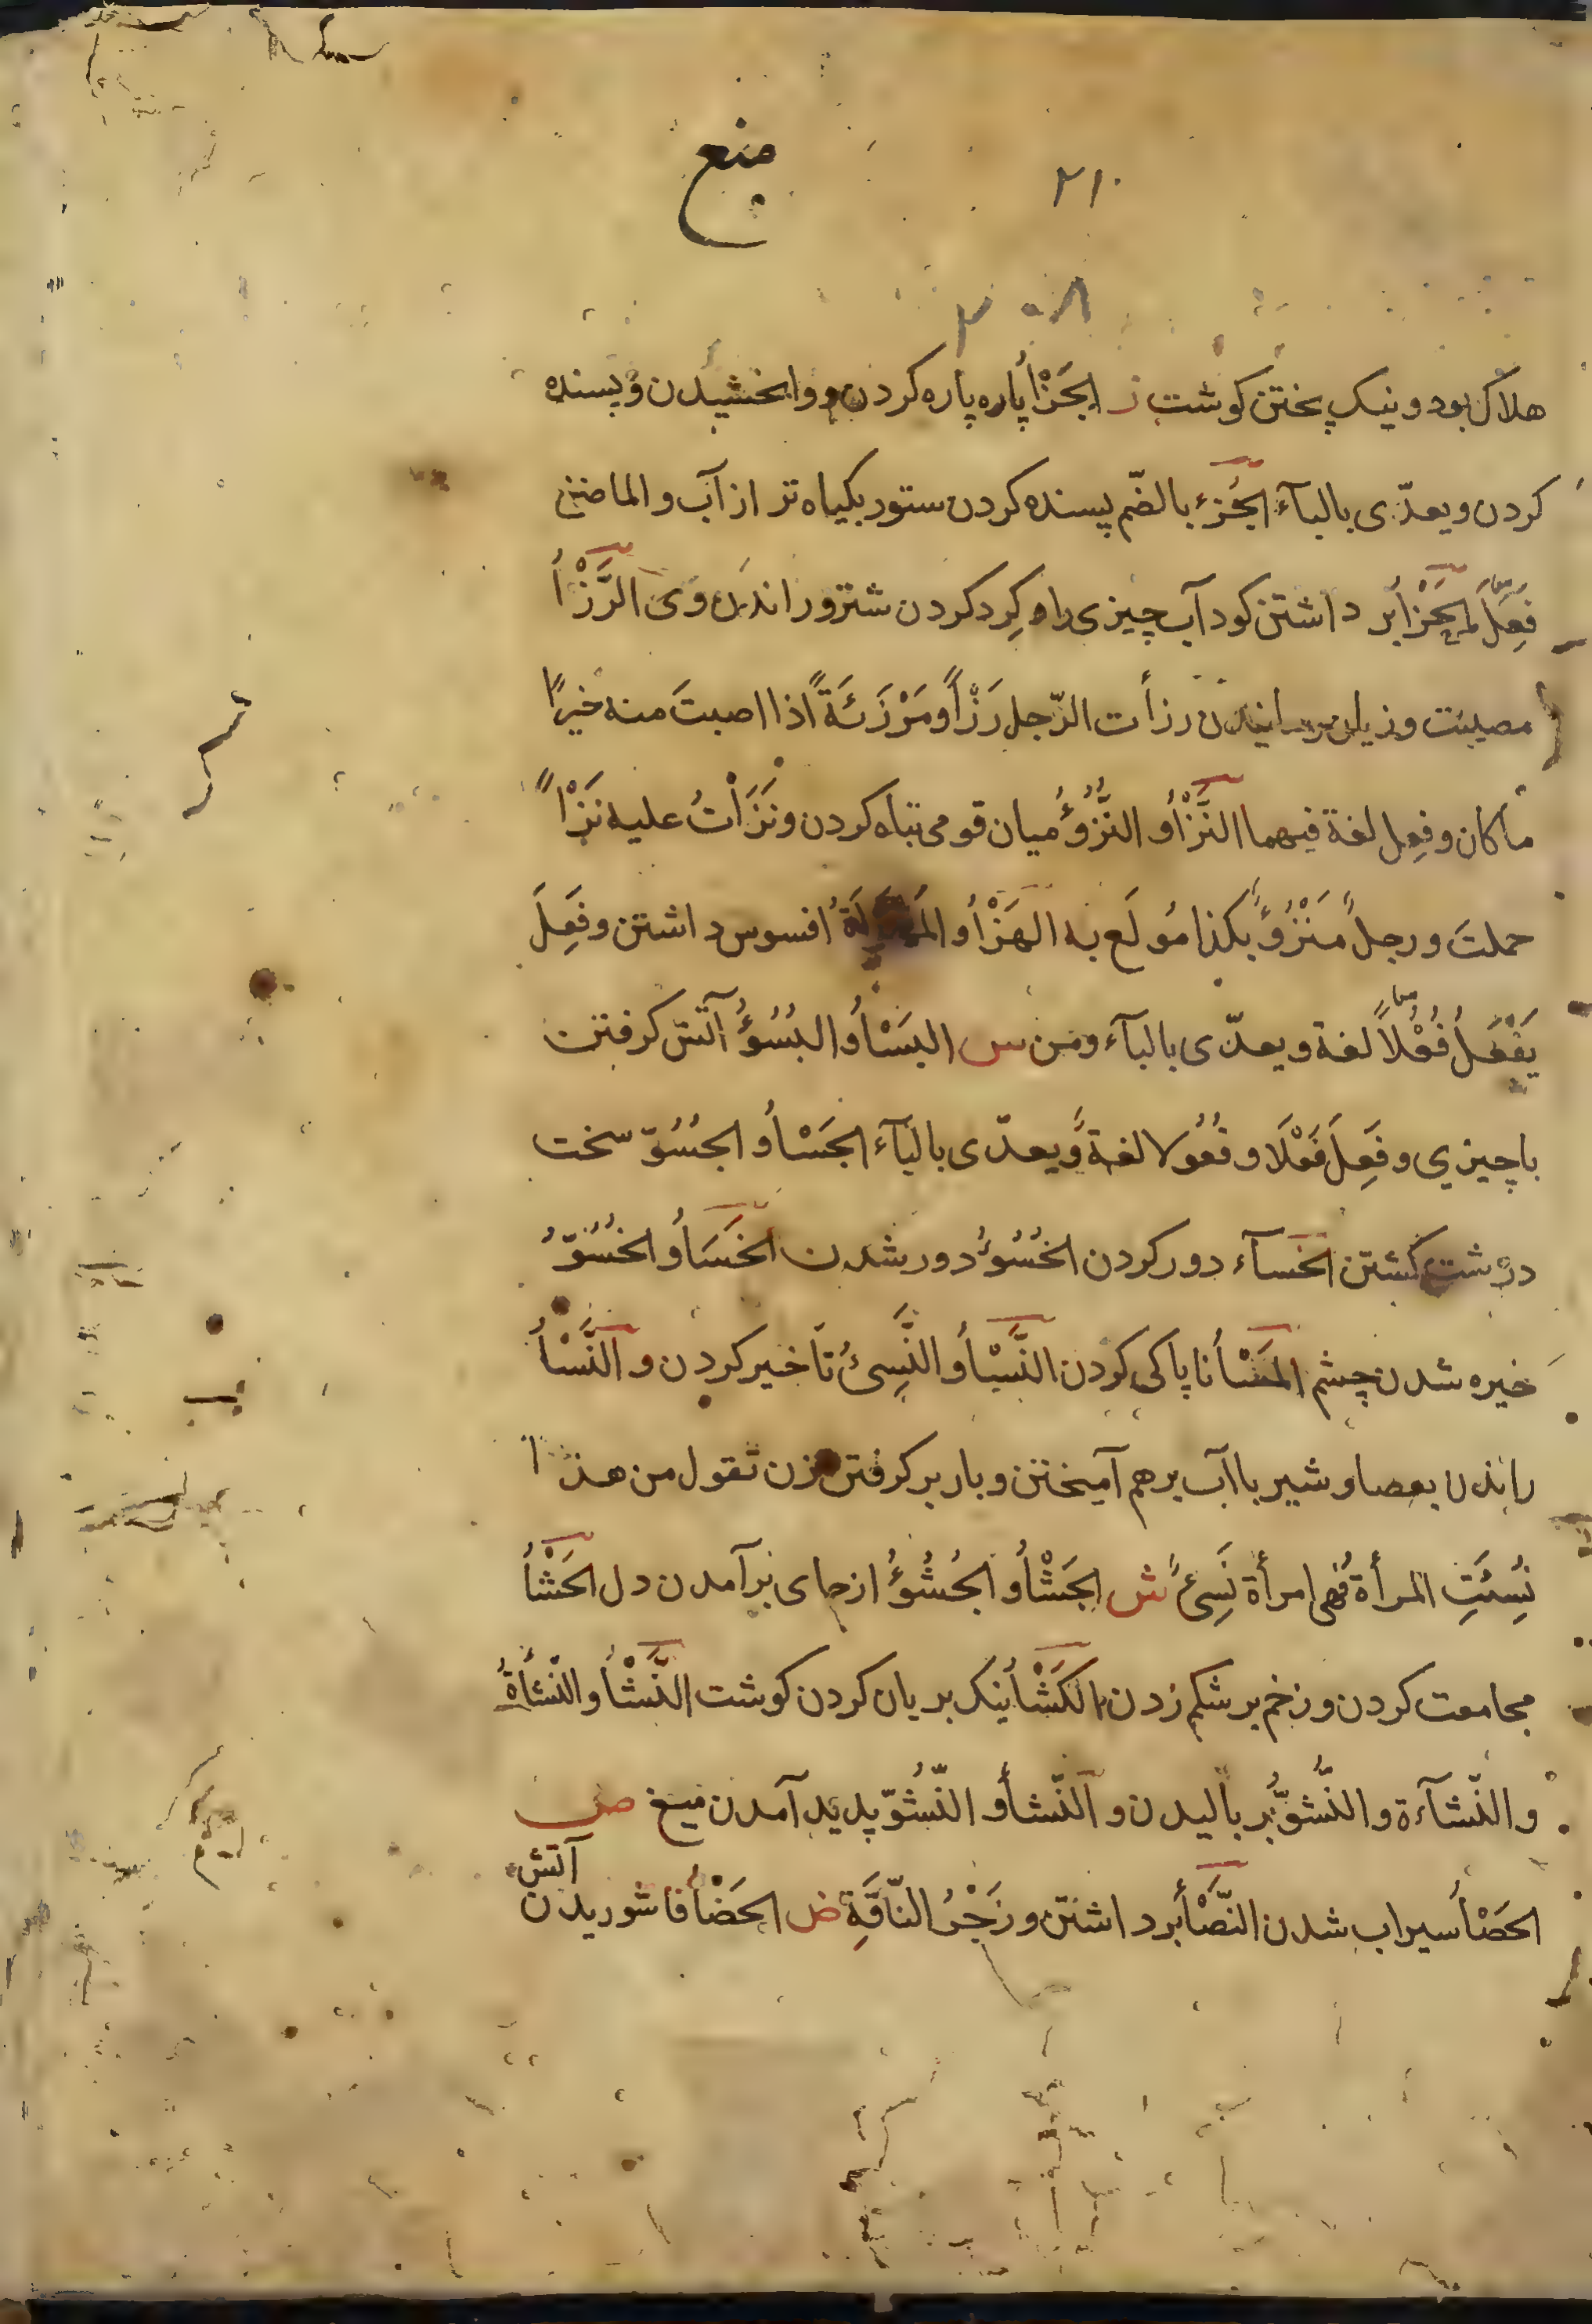 منع
۲۱۰
۲۰۸
هلاک بود و نیک پختن کوشت ز الجَزْأُ پاره پاره کردن و وابخشیدن و بسنده
کردن و یعدّی بالبآء الجُزْءُ بالضّم بسنده کردن ستور بکیاه تر از آب و الماضی
فَعِلَ الحَزْأُ بر داشتن کود آب چیزی را و کِرد کردن شتر و راندن وی الرَّزْأُ
مصیبت و زیان رسانیدن رزأت الرّجل رَزْأً و مَرْزَئَةً اذا اصبتَ منه خیرًا
ما کان و فعِل لغة فیهما النَّزْأُ و النُّزُوْءُ میان قومی تباه کردن و نَزَأْتُ علیه نَزْأً
حملتَ و رجلٌ مَنْزُوْءٌ بکذا مُولَع به الهَزْأُ و افسوس داشتن و فَعِلَ
یَفْعَلُ فُعْلاً لغة و یعدّی بالبآء و من س البَسْأُ و البُسُوْءُ آتش کرفتن
با چیزی و فَعِلَ فَعْلًا و فُعُولا لغة و یعدّی بالبآء الجَسْأُ و الجُسُوّ سخت
درشت کشتن الخَسآء دور کردن الخُسُوْءُ دور شدن الخَسَأُ و الخُسُوّ
خیره شدن چشم المَسْأُ ناپاکی کردن النَّسْأُ و النَّسِیْءُ تأخیر کردن و النَّسْأُ
راندن بعصا و شیر با آب برهم آمیختن و بار بر کرفتن زن تقول من هذا
نُسِئَتِ المرأة فهی امرأة نَسِیْءٌ ش الجَشْأُ و الجُشُوْءُ از جای برآمدن دل الحَشْأُ
مجامعت کردن و زخم بر شکم زدن الکَشْأُ نیک بریان کردن کوشت النَّشْأُ و النَّشْأَةُ
و النّشآءة و النُّشُوُّ بر بالیدن و النّشأُ و النّشُوّ پدید آمدن میغ ص
الحَصْأُ سیراب شدن النَّصْأُ برداشتن و زَجْرُ النّاقَةِ ض الحَضْأُ فا شوریدن
آتش